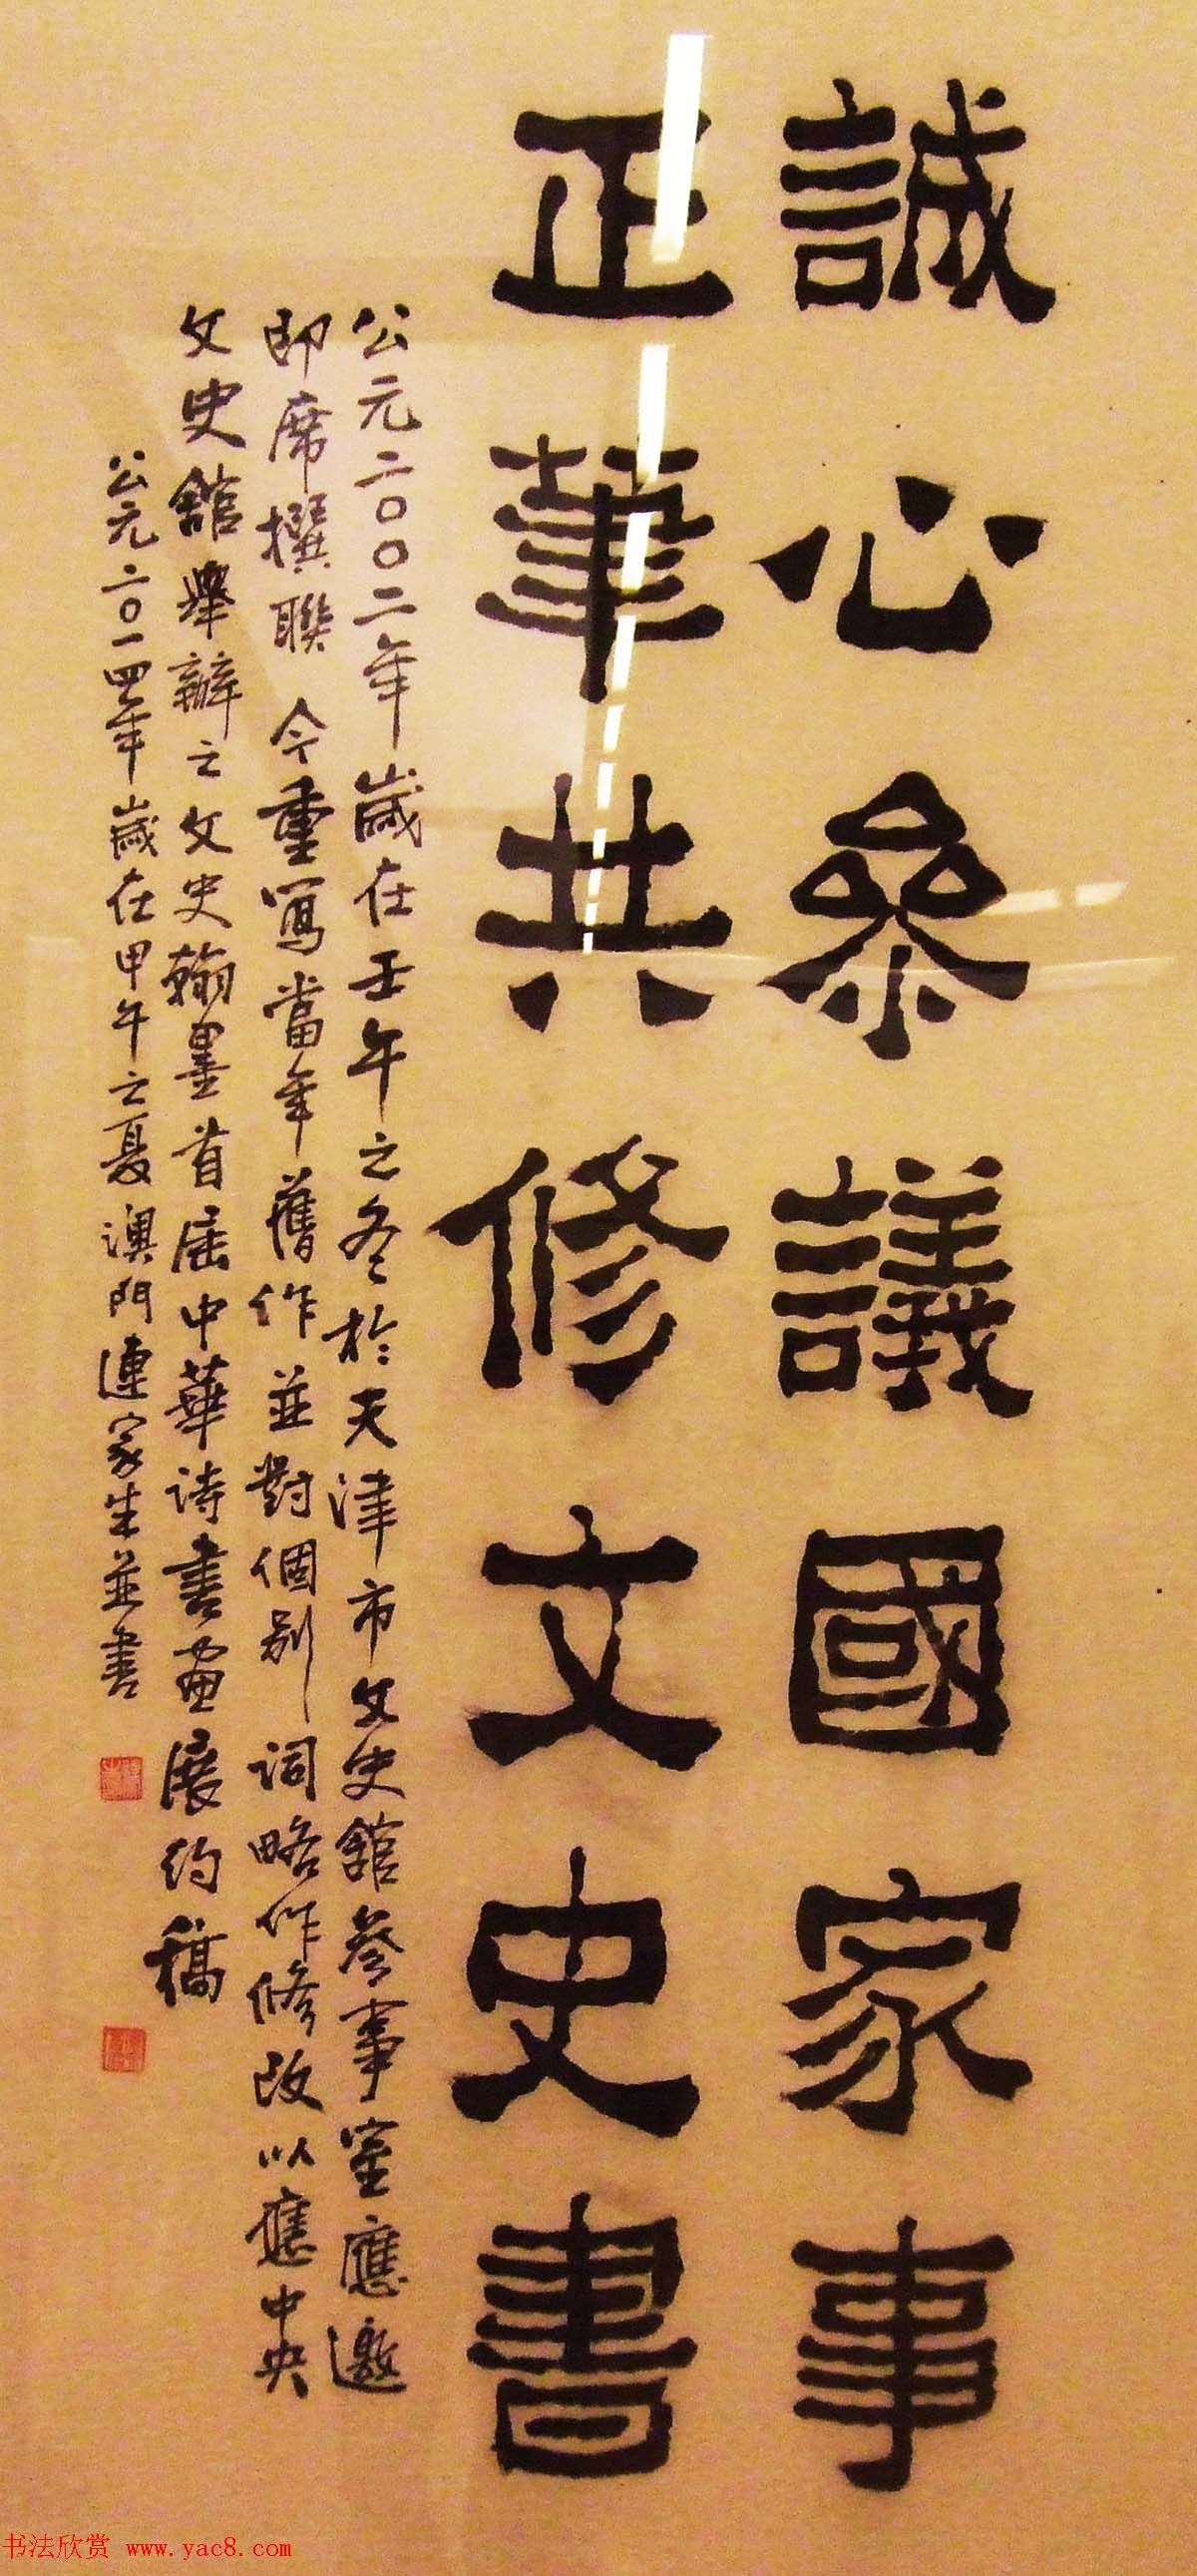 誠心參議國家事
正筆共修文史書
公元二〇〇二年歲在壬午之冬於天津市文史館參事室應邀
即席撰聯 今重寫當年舊作並對個別詞略作修改以應中央
文史館舉辦之文史翰墨首屆中華诗書画展约稿
公元二〇一四年歲在甲午之夏澳門連家生並書
书法欣赏 www.yac8.com